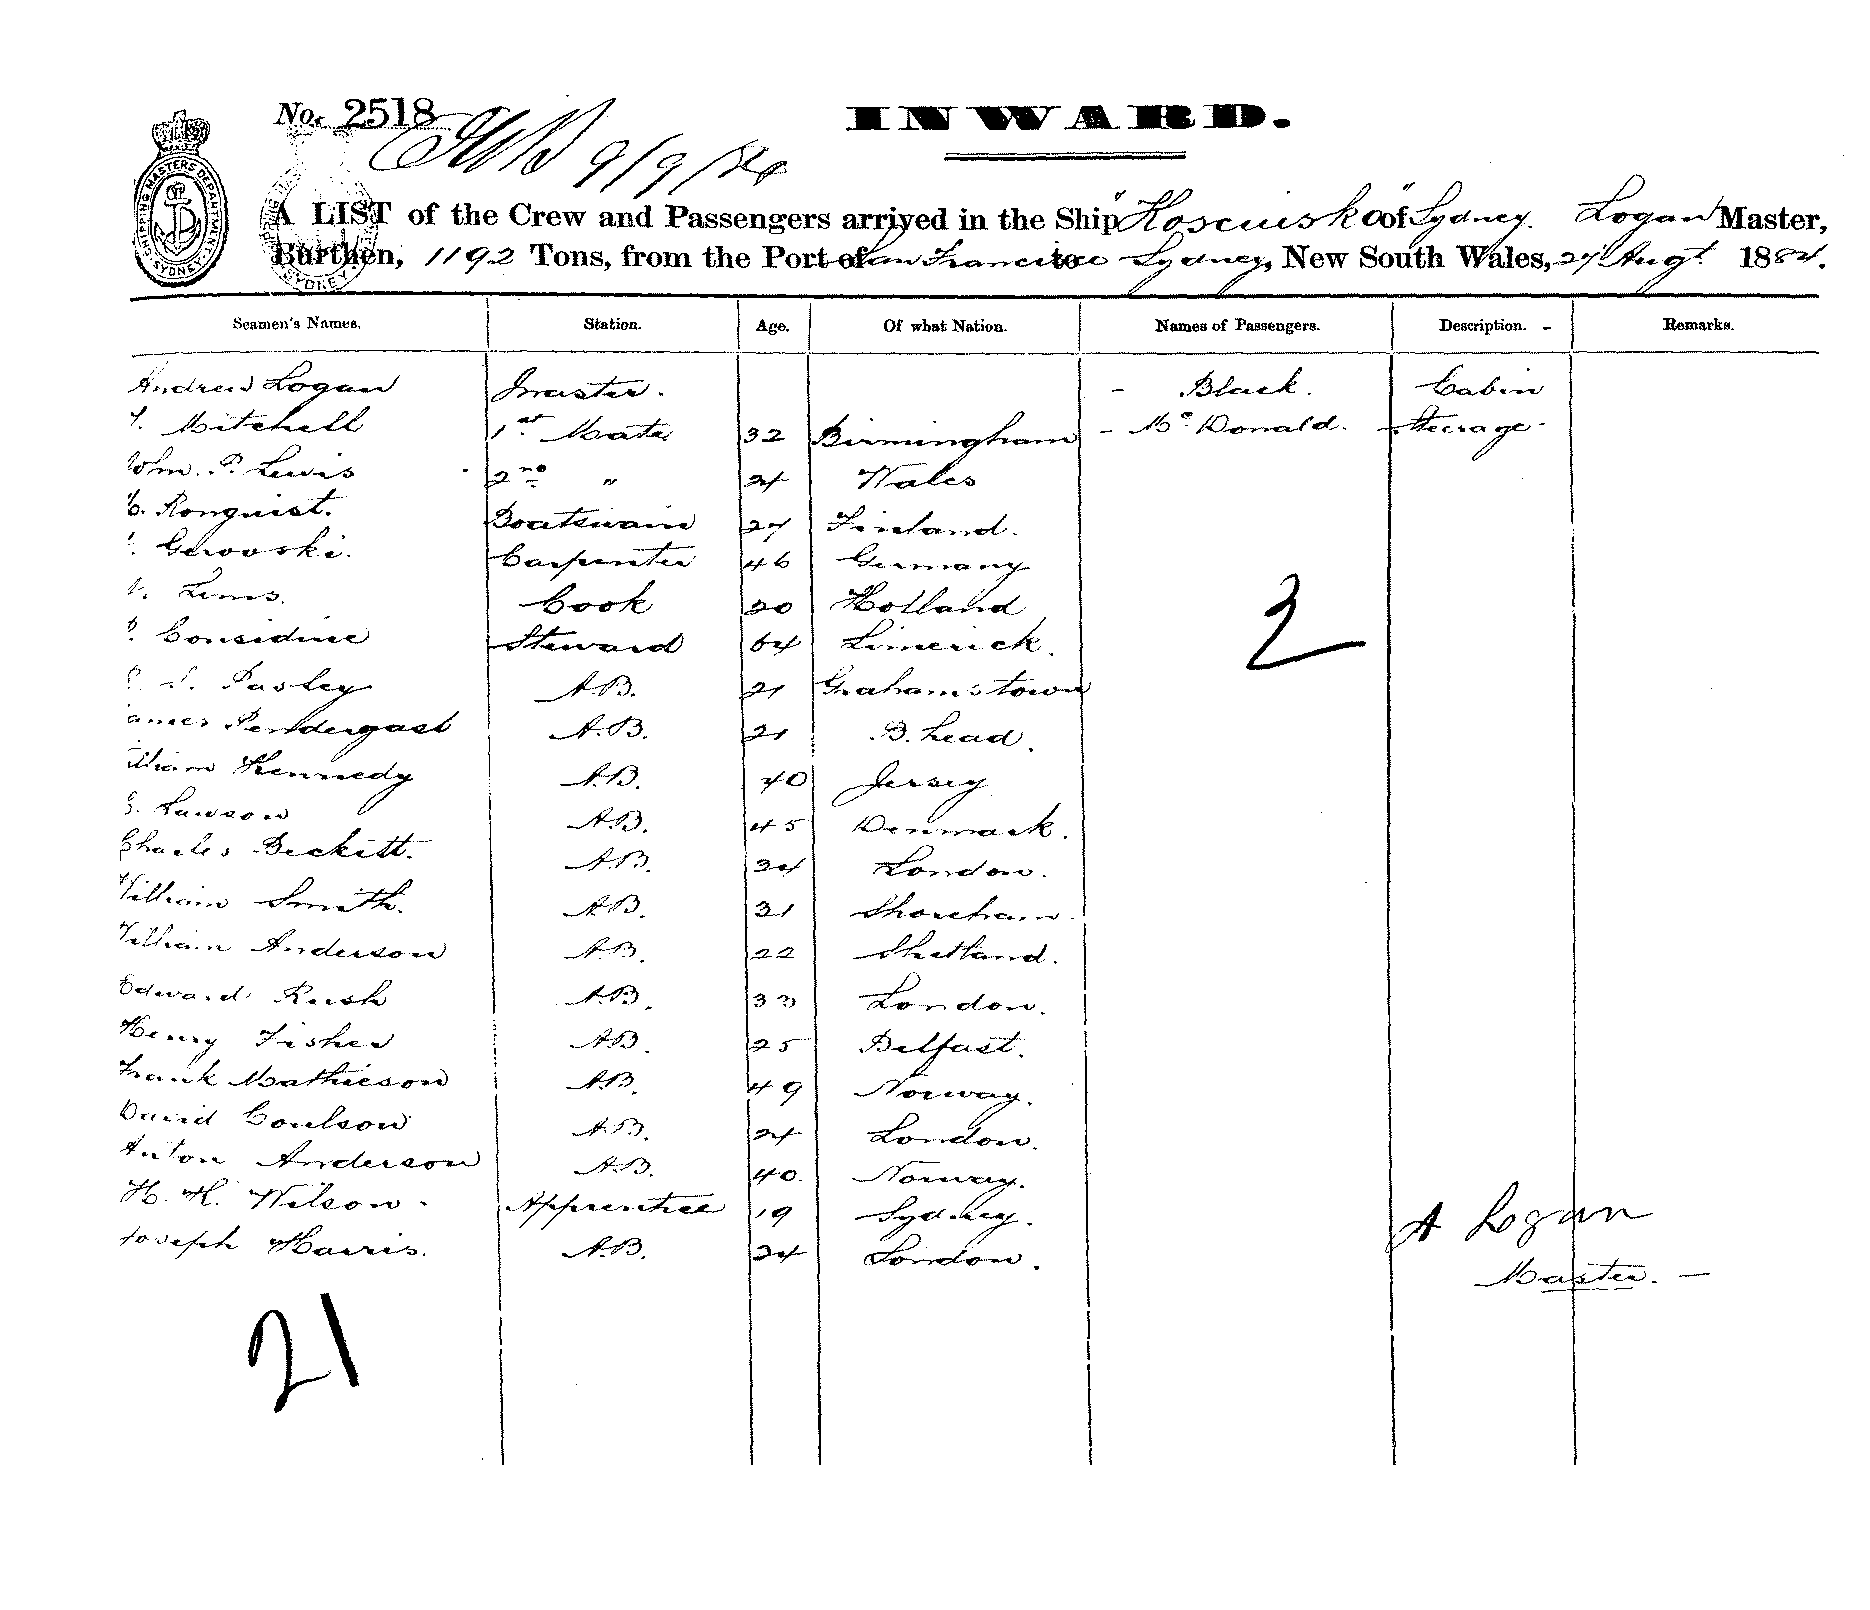 No. 2518
INWARD.
9/9/84
SHIPPING MASTERS DEPARTMENT SYDNEY
A LIST of the Crew and Passengers arrived in the Ship "Kosciusko" of Sydney. Logan Master,
Burthen, 1192 Tons, from the Port of San Francisco to Sydney, New South Wales, 27 Augt. 1884.
Seamen's Names. Station. Age. Of what Nation. Names of Passengers. Description. Remarks.
Andrew Logan Master. - Black. Cabin
Mitchell 1st Mate 32 Birmingham - Mc Donald. Steerage
Wm. P. Lewis 2nd " 24 Wales
Ronquist. Boatswain 27 Finland.
Gerovski. Carpenter 46 Germany
Lims. Cook 20 Holland
Considine Steward 64 Limerick.
Pasley A.B. 21 Grahamstown
James Pendergast A.B. 21 B. Lead.
William Kennedy A.B. 40 Jersey
Lawson A.B. 45 Denmark.
Charles Beckett. A.B. 24 London.
William Smith. A.B. 31 Shoreham.
William Anderson A.B. 22 Shetland.
Edward Rush A.B. 33 London.
Henry Fisher A.B. 25 Belfast.
Frank Mathieson A.B. 49 Norway.
David Coulson A.B. 24 London.
Anton Anderson A.B. 40. Norway.
H. H. Wilson - Apprentice 19 Sydney.
Joseph Harris. A.B. 24 London.
2
A Logan
Master. -
21